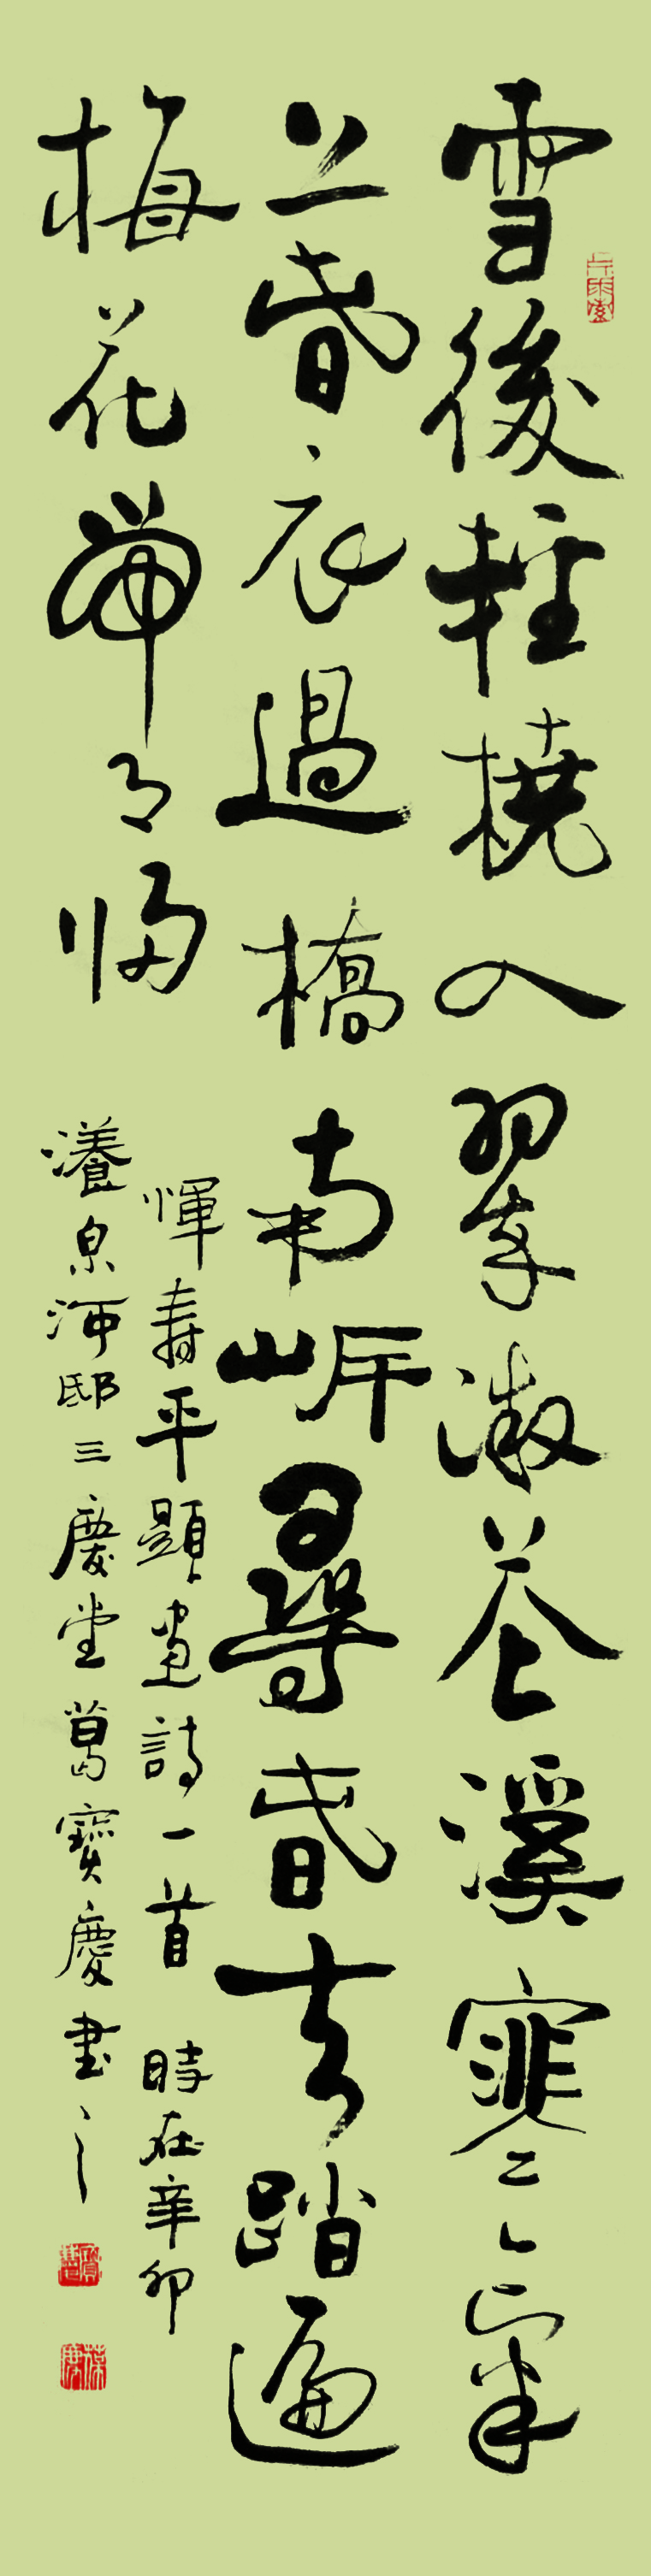 雪後輕橈入翠微花溪寒氣
上春衣過橋南岸尋春去踏遍
梅花帶月歸
惲壽平題畫詩一首 時在辛卯
瀁泉河邸三慶堂葛寶慶書之